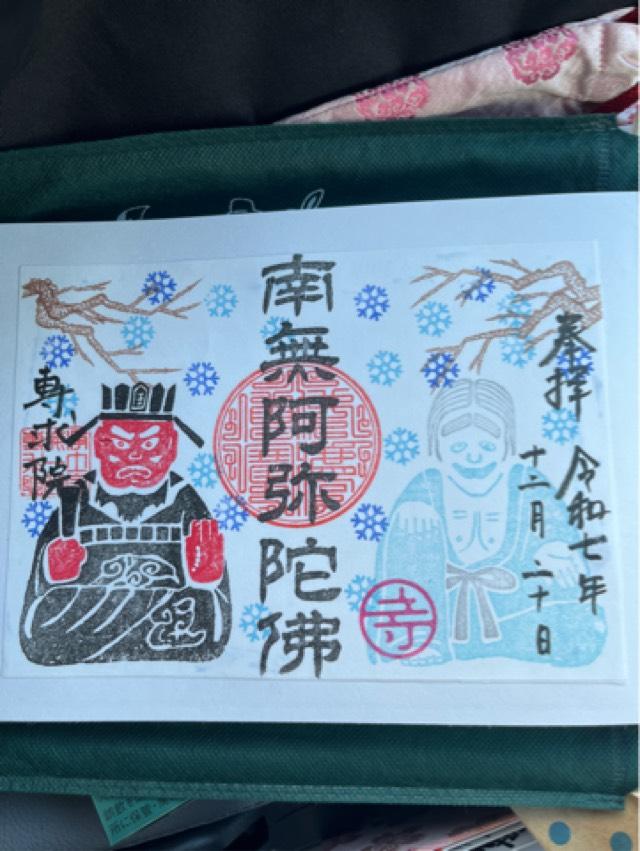 奉拝
令和七年
十二月二十日
南無阿弥陀佛
専求院
寺